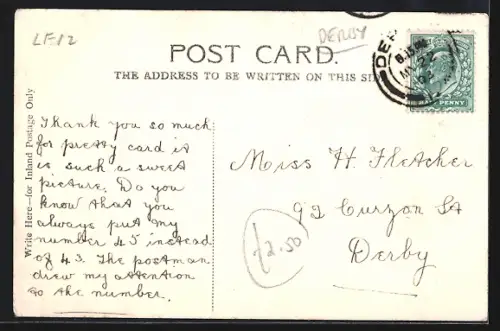 LF12
DERBY
POST CARD.
THE ADDRESS TO BE WRITTEN ON THIS SIDE
Write Here—for Inland Postage Only
Thank you so much
for pretty card it
is such a sweet
picture. Do you
know that you
always put my
number 45 instead
of 43. The postman
drew my attention
to the number.
Miss H. Fletcher
92 Curzon St
Derby
£2.50
DE
8.15 PM
22
HALF PENNY